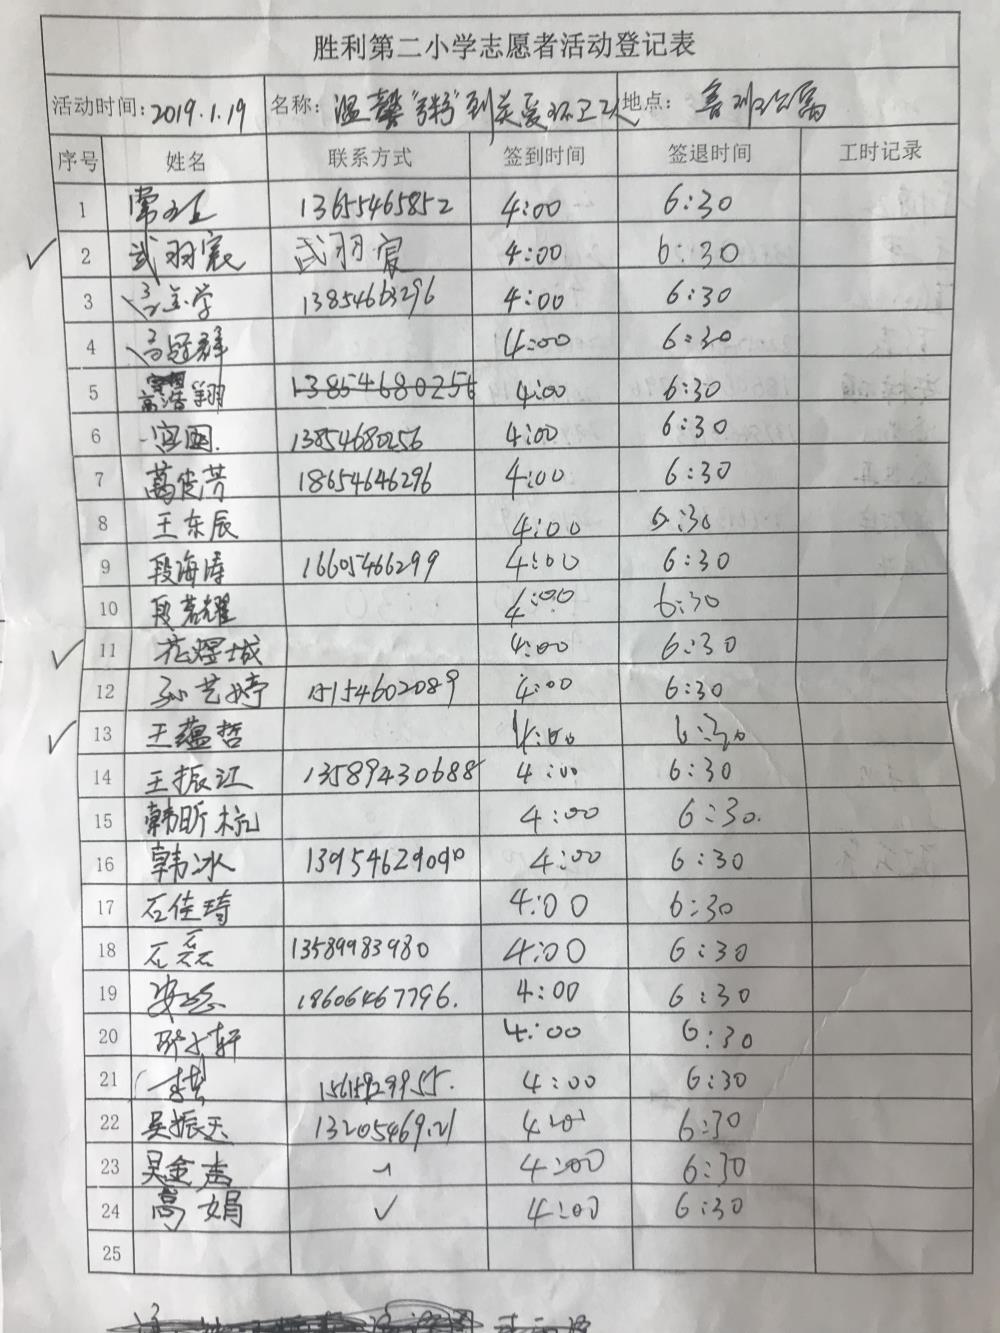 胜利第二小学志愿者活动登记表
活动时间: 2019.1.19 名称: 温馨"粥"到关爱环卫工人 地点: 公寓
序号 姓名 联系方式 签到时间 签退时间 工时记录
1 常 13655465852 4:00 6:30
2 武羽宸 武羽宸 4:00 6:30
3 学 13854663296 4:00 6:30
4 高冠群 4:00 6:30
5 高浩翔 13854680256 4:00 6:30
6 宫国 13854680256 4:00 6:30
7 葛俊芳 18654646296 4:00 6:30
8 王东辰 4:00 6:30
9 段海涛 16605466299 4:00 6:30
10 段茗耀 4:00 6:30
11 花煜城 4:00 6:30
12 孙艺婷 15154602089 4:00 6:30
13 王蕴哲 4:00 6:30
14 王振江 13589430688 4:00 6:30
15 韩昕杭 4:00 6:30.
16 韩冰 13954629090 4:00 6:30
17 石佳琦 4:00 6:30
18 石磊 13589983980 4:00 6:30
19 安 18606467796. 4:00 6:30
20 轩 4:00 6:30
21 4:00 6:30
22 吴振天 13205469121 4:00 6:30
23 吴金声 4:00 6:30
24 高娟 ✓ 4:00 6:30
25